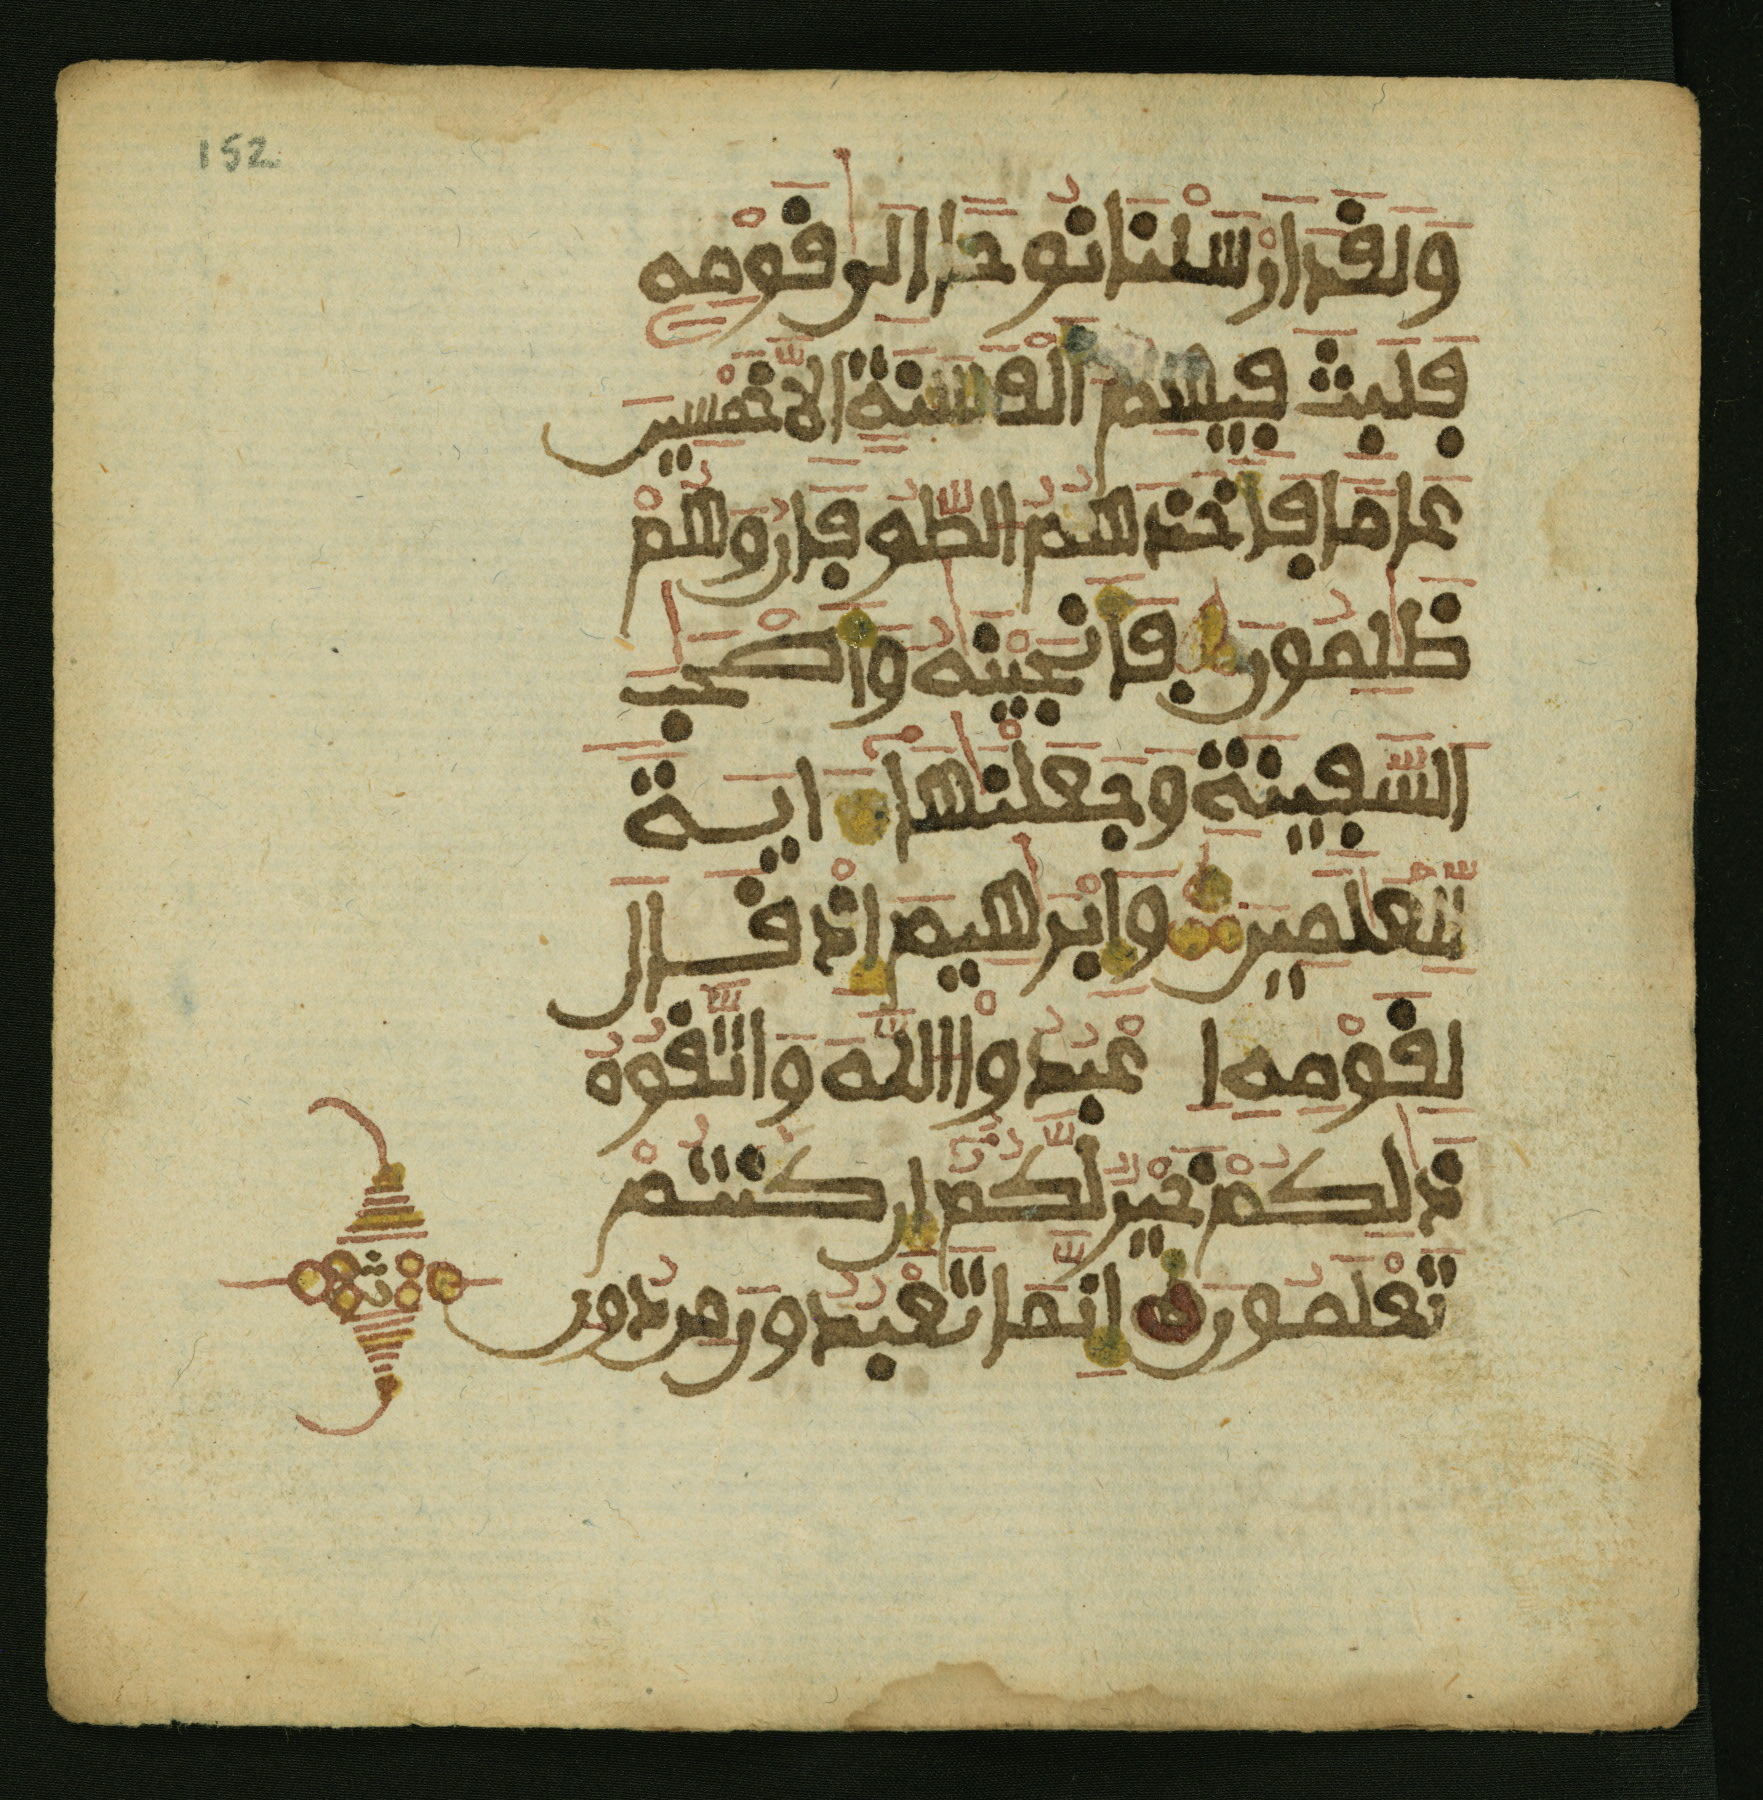 152
ولقد ارسلنا نوحا الى قومه
فلبث فيهم الف سنة الا خمسين
عاما فاخذهم الطوفان وهم
ظلمون فانجينه واصحب
السفينة وجعلنها اية
للعلمين وابرهيم اذ قال
لقومه اعبدوا الله واتقوه
ذلكم خير لكم ان كنتم
تعلمون انما تعبدون من دون